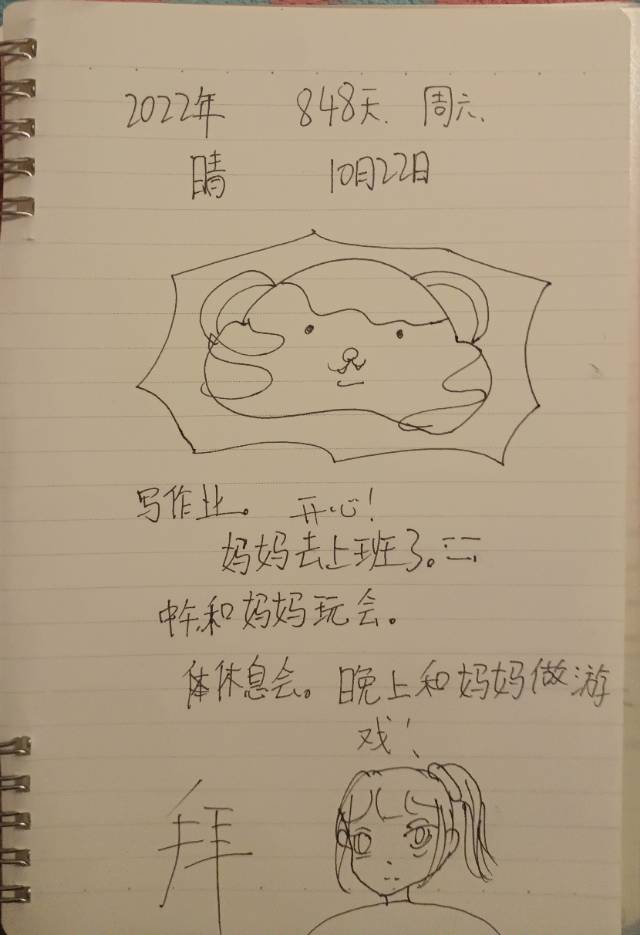 2022年 848天. 周六.
晴 10月22日
写作业。 开心!
妈妈去上班了。
中午和妈妈玩会。
休息会。晚上和妈妈做游
戏!
拜